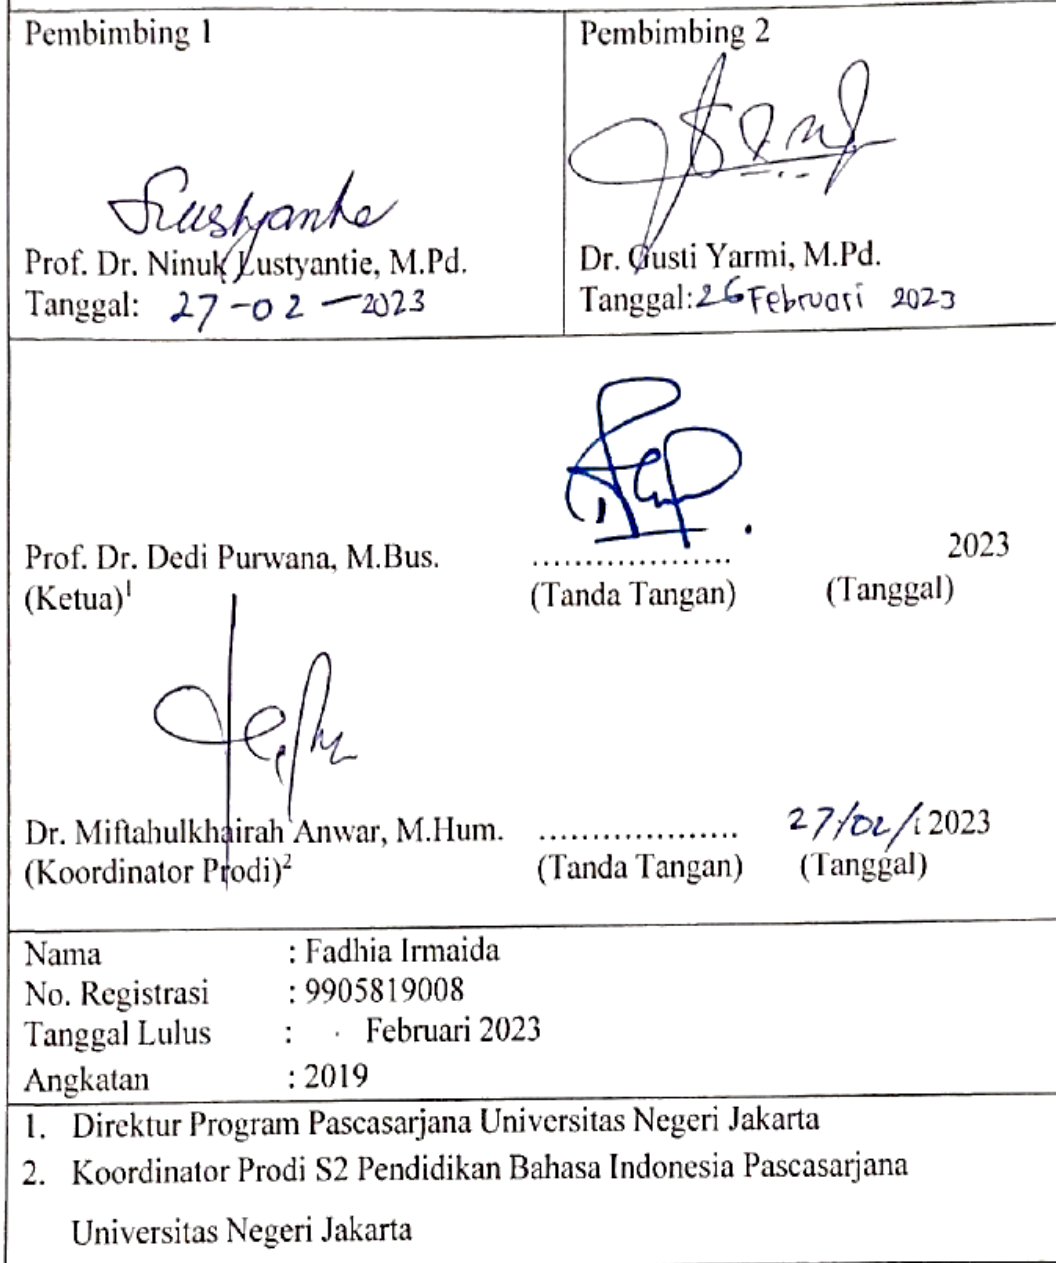 Pembimbing 1
Prof. Dr. Ninuk Lustyantie, M.Pd.
Tanggal: 27-02-2023
Pembimbing 2
Dr. Gusti Yarmi, M.Pd.
Tanggal: 26 Februari 2023
Prof. Dr. Dedi Purwana, M.Bus. ................... 2023
(Ketua)¹ (Tanda Tangan) (Tanggal)
Dr. Miftahulkhairah Anwar, M.Hum. ................... 27/02/2023
(Koordinator Prodi)² (Tanda Tangan) (Tanggal)
Nama : Fadhia Irmaida
No. Registrasi : 9905819008
Tanggal Lulus : Februari 2023
Angkatan : 2019
1. Direktur Program Pascasarjana Universitas Negeri Jakarta
2. Koordinator Prodi S2 Pendidikan Bahasa Indonesia Pascasarjana
Universitas Negeri Jakarta